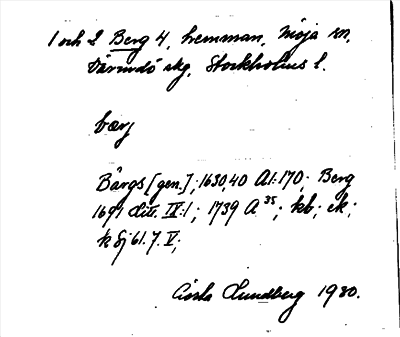 1 och 2 Berg 4, hemman, Möja sn,
Värmdö skg, Stockholms l.
bærj
Bärgs [gen.]; 1630,40 AI:170; Berg
1691 Lit. IX:1; 1739 A 35; kb; ek;
k Sj 61.7. V;
Gösta Lundberg 1930.